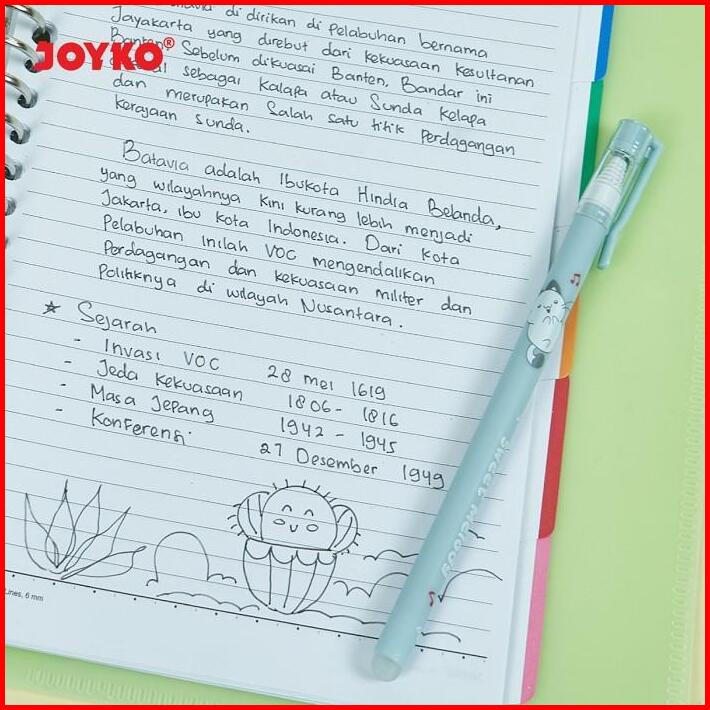 di dirikan di Pelabuhan bernama
Jayakarta yang direbut dari kekuasaan kesultanan
Banten. Sebelum dikuasai Banten, Bandar ini
sebagai Kalapa atau Sunda Kelapa
dan merupakan Salah satu titik Perdagangan
kerajaan sunda.
JOYKO®
Batavia adalah Ibukota Hindia Belanda,
yang wilayahnya kini kurang lebih menjadi
Jakarta, ibu kota Indonesia. Dari kota
Pelabuhan inilah VOC mengendalikan
Perdagangan dan kekuasaan militer dan
Politiknya di wilayah Nusantara.
☆ Sejarah
- Invasi VOC 28 mei 1619
- Jeda kekuasaan 1806 - 1816
- Masa Jepang 1942 - 1945
- Konferensi 27 Desember 1949
Lines, 6 mm
SWEET MELODY